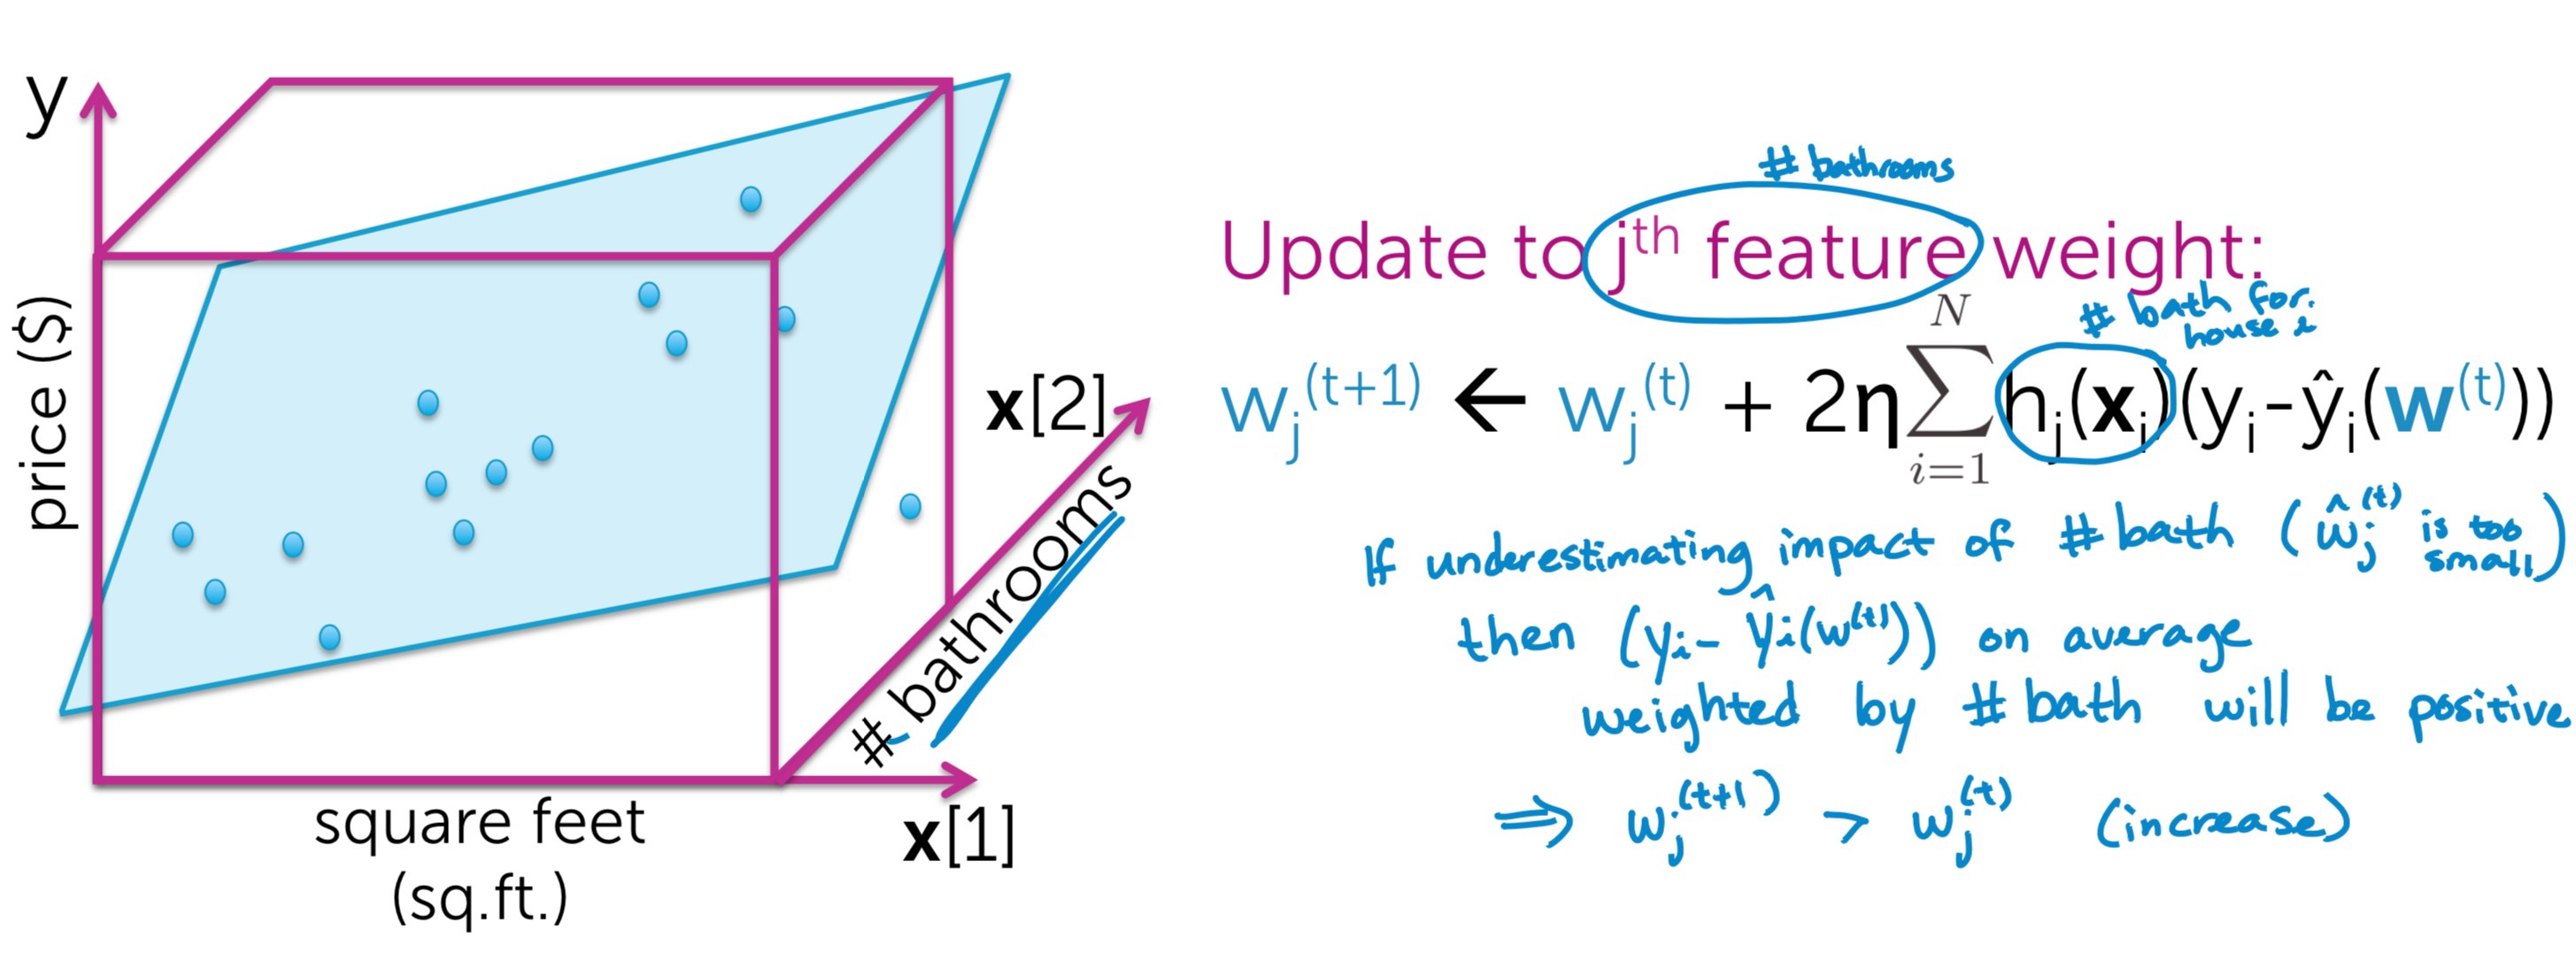 y
price ($)
square feet
(sq.ft.)
x[1]
# bathrooms
x[2]
# bathrooms
Update to jth feature weight:
# bath for
house i
wj(t+1) ← wj(t) + 2η∑i=1N hj(xi)(yi-ŷi(w(t)))
If underestimating impact of # bath (ŵj(t) is too small)
then (yi - ŷi(w(t))) on average
weighted by # bath will be positive
⇒ wj(t+1) > wj(t) (increase)